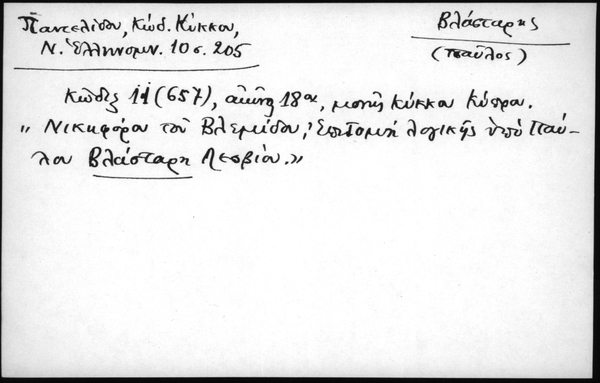 Παντελίδου, Κώδ. Κύκκου,
Ν. Ἑλληνομν. 10 σ. 205
Βλάσταρης
(Παῦλος)
Κῶδιξ 11 (657), αἰῶνος 18ου, μονῆς Κύκκου Κύπρου.
„ Νικηφόρου τοῦ Βλεμίδου, Ἐπιτομὴ λογικῆς ὑπὸ Παύ-
λου Βλάσταρη Λεσβίου.”